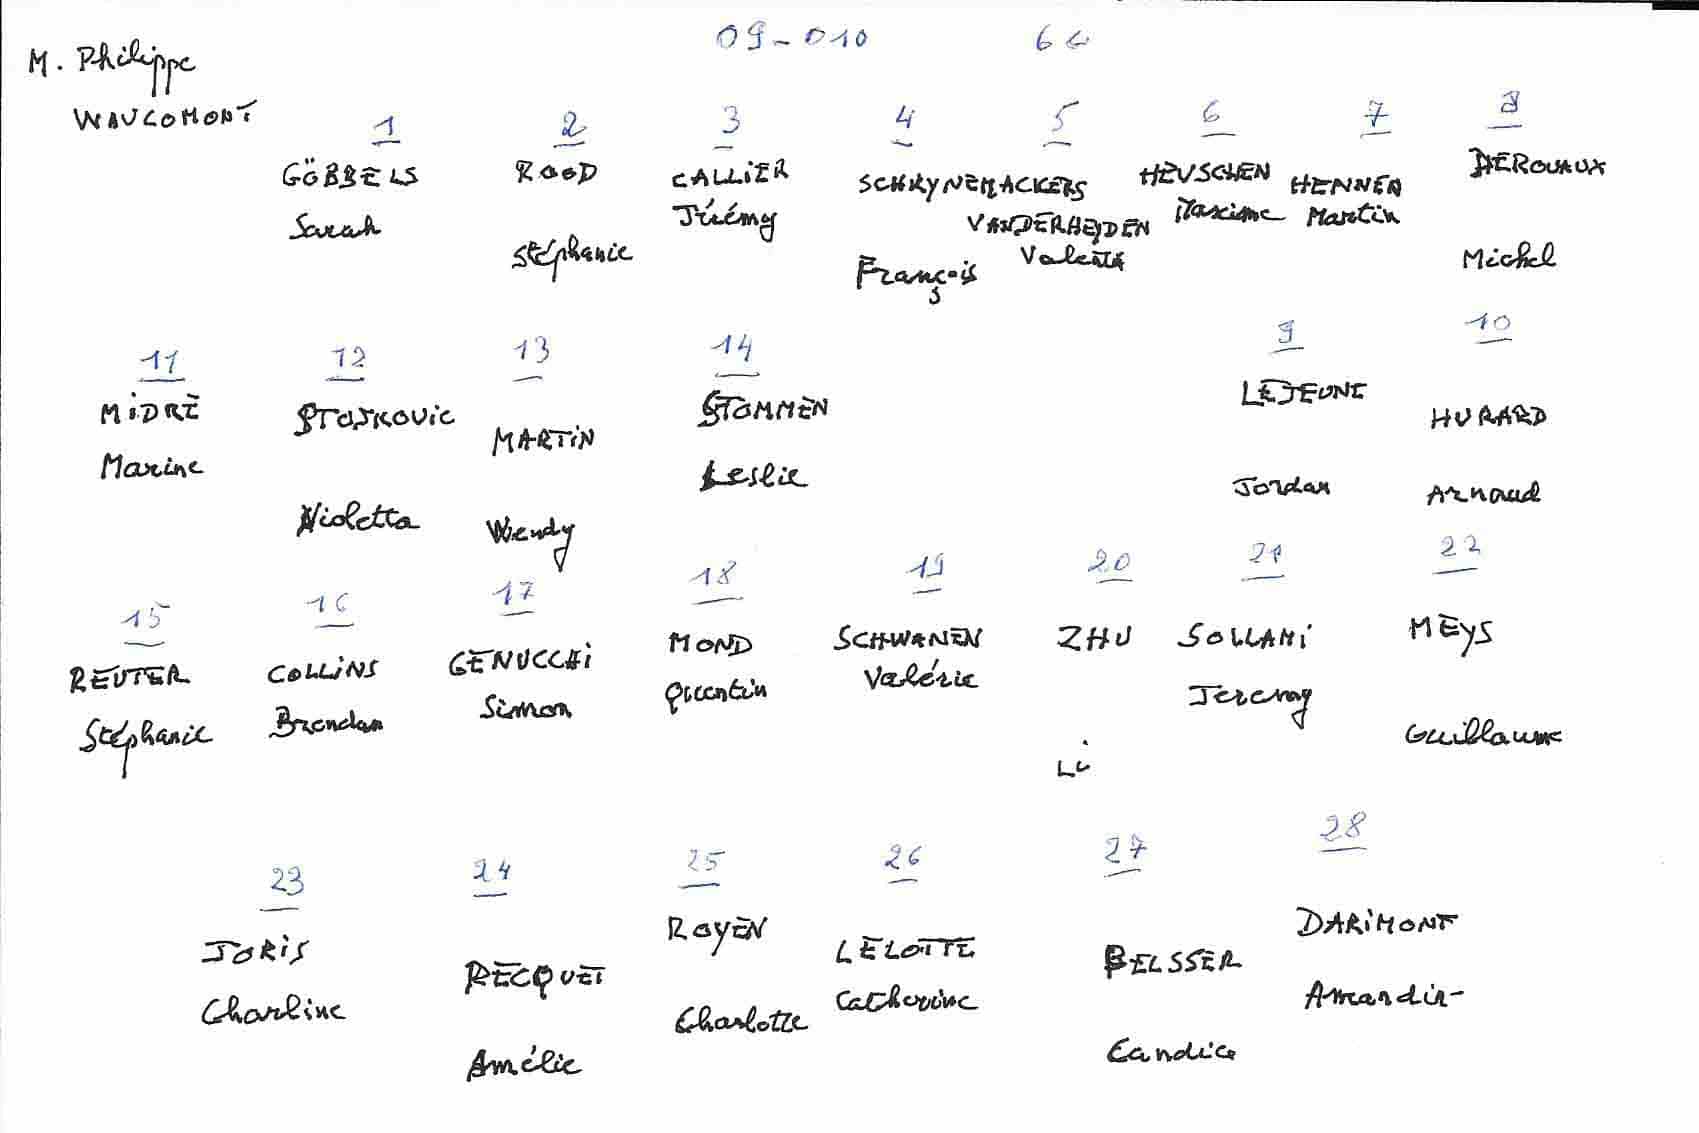 09-010 6G
M. Philippe
WAUCOMONT
1 2 3 4 5 6 7 8
GÖBBELS ROOD CALLIER SCHRYNEMACKERS VANDERHEJDEN HEUSCHEN HENNEN DEROUAUX
Sarah Stéphanie Jérémy François Maxime Martin Michel
11 12 13 14 9 10
MiDRÉ STOJKOVIC MARTiN STOMMEN LEJEUNE HURARD
Marine Violetta Wendy Leslie Jordan Arnaud
15 16 17 18 19 20 21 22
REUTER COLLiNS GENUCCHi MOND SCHWANEN ZHU SOLLAMi MEYS
Stéphanie Brendan Simon Quentin Valérie Li Jeremy Guillaume
23 24 25 26 27 28
JORiS RECQUET ROYEN LELOTTE BELSSER DARiMONT
Charline Amélie Charlotte Catherine Candice Amandin-